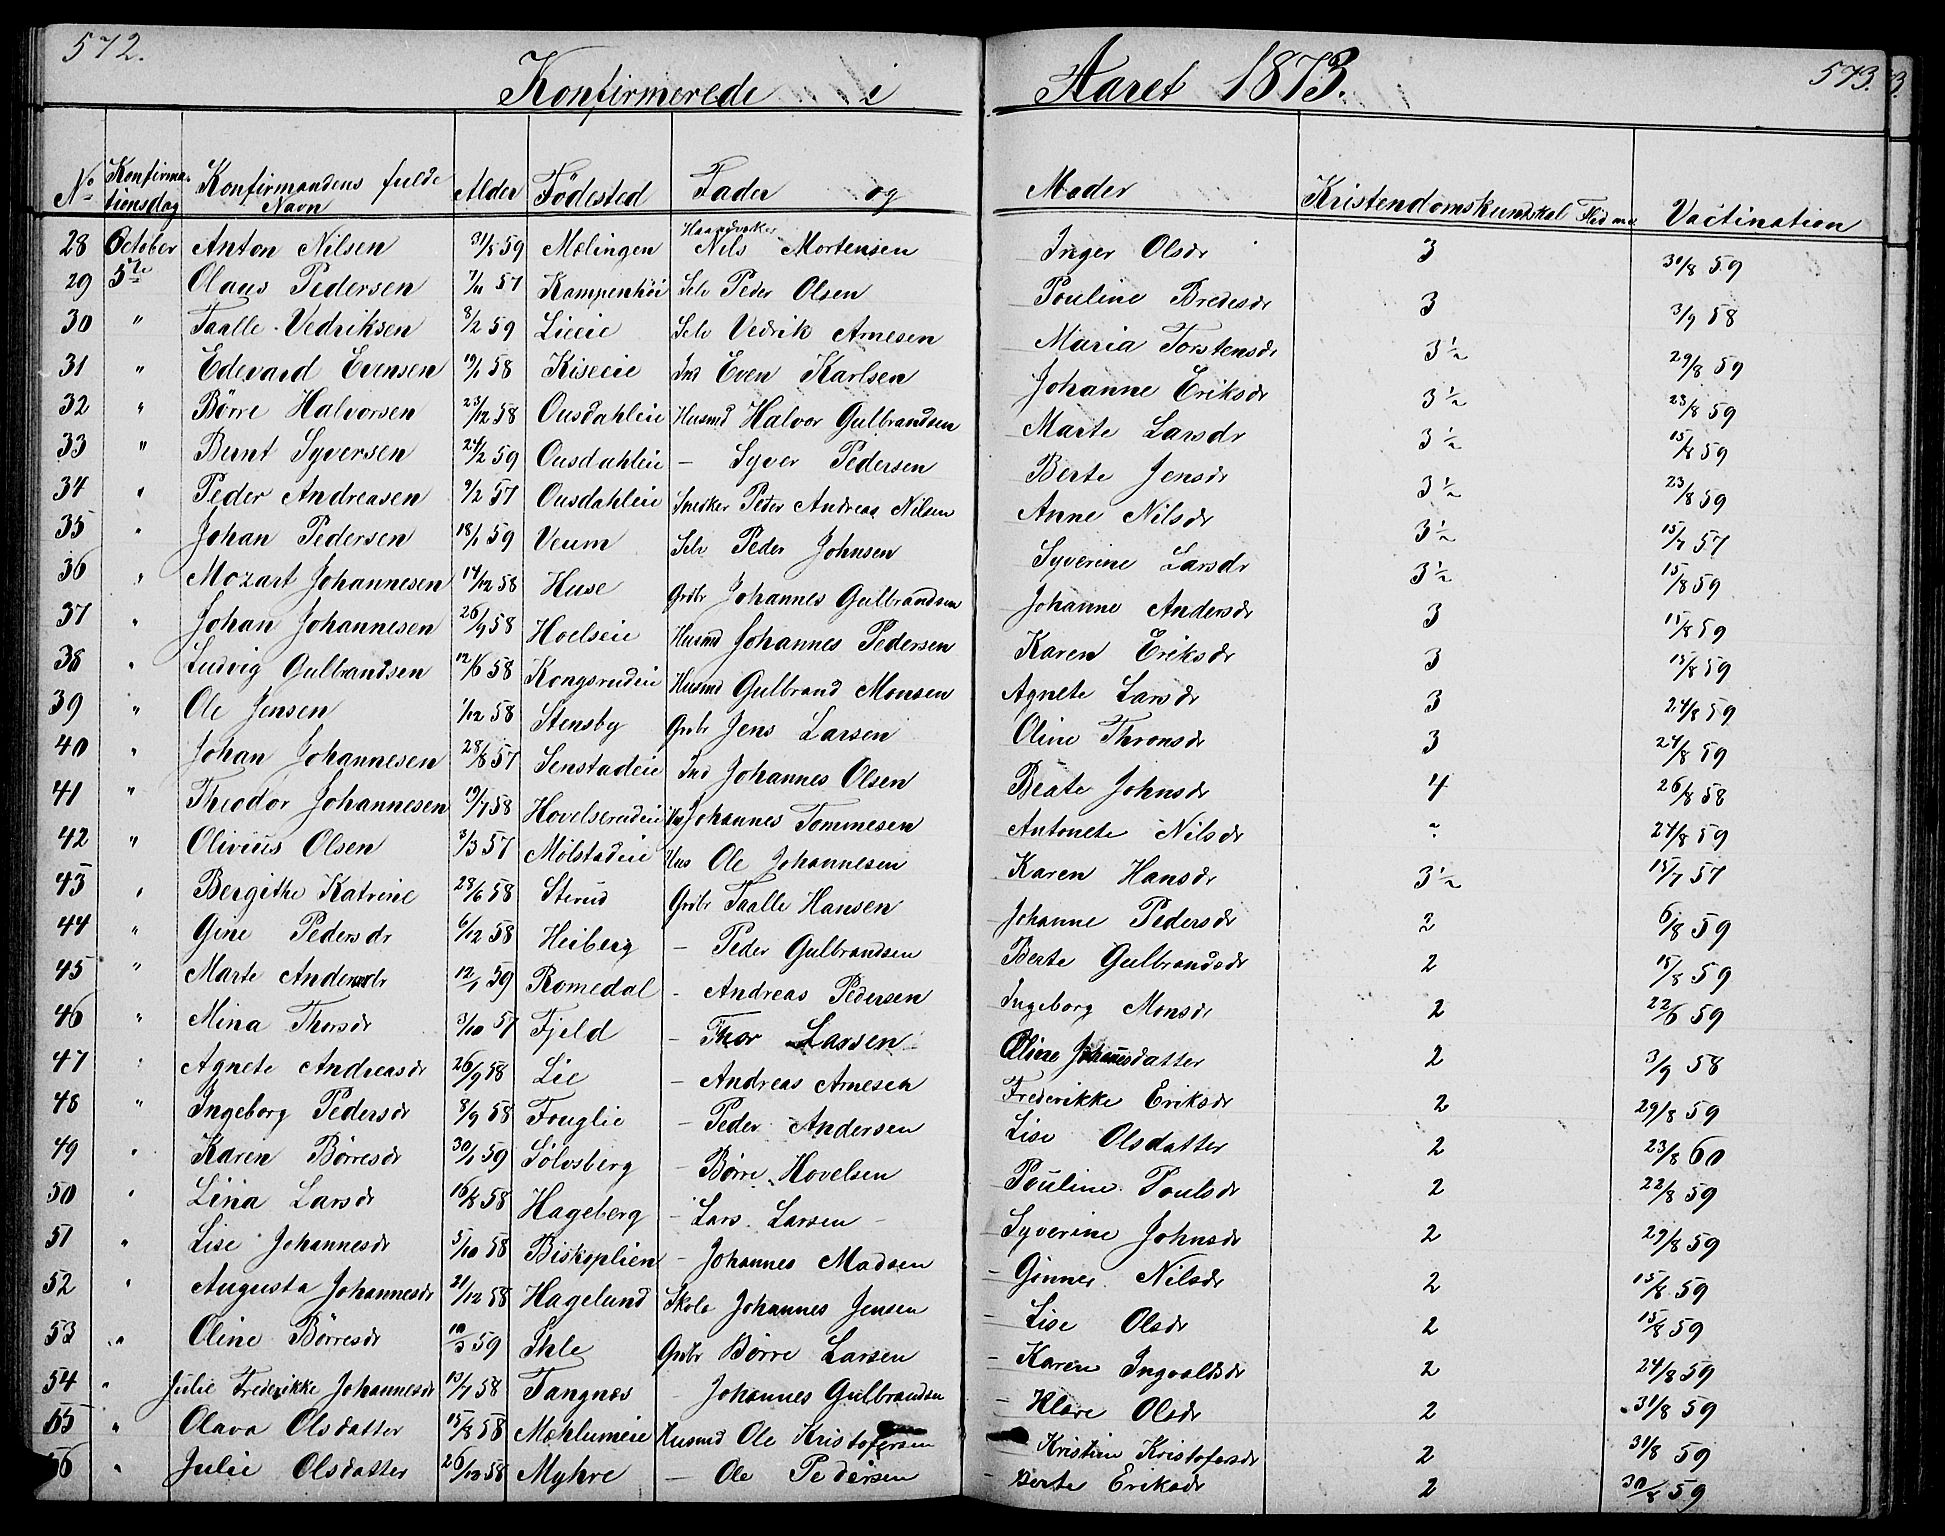 572.
573.
Konfirmerede i Aaret 1873.
No Konfirmationsdag Konfirmandens fulde Navn Alder Födested Fader og Moder Kristendomskundskab Flid m.v. Vactination
28 October Anton Nilsen 31/8 59 Mælingen Haandværker Nils Mortensen Inger Olsdr 3 30/8 59
29 5te Olaus Pedersen 7/11 57 Kampenhöi Selv Peder Olsen Pouline Bredesdr 3 3/9 58
30 " Taalle Vedriksen 8/2 59 Lieeie Selv Vedrik Arnesen Maria Torstensdr 3½ 29/8 59
31 " Edevard Evensen 19/1 58 Kiseeie Ind Even Karlsen Johanne Eriksdr 3½ 23/8 59
32 " Börre Halvorsen 23/12 58 Ousdahleie Husmd Halvor Gulbrandsen Marte Larsdr 3½ 15/8 59
33 " Bernt Syversen 24/2 59 Ousdahleie - Syver Pedersen Berte Jensdr 3½ 23/8 59
34 " Peder Andreasen 9/2 57 Ousdahleie Snedker Peder Andreas Nilsen Anne Nilsdr 3½ 15/7 57
35 " Johan Pedersen 18/1 59 Veum Selv Peder Johnsen Syverine Larsdr 3½ 15/8 59
36 " Mozart Johannesen 14/12 58 Huse Grdbr Johannes Gulbrandsen Johanne Andersdr 3 15/8 59
37 " Johan Johannesen 26/9 58 Hoelseie Husmd Johannes Pedersen Karen Eriksdr 3 15/8 59
38 " Ludvig Gulbrandsen 12/6 58 Kongsrudeie Husmd Gulbrand Monsen Agnete Larsdr 3 24/8 59
39 " Ole Jensen 1/12 58 Stensby Grdbr Jens Larsen Oline Thronsdr 3 24/8 59
40 " Johan Johannesen 28/8 57 Senstadeie Ind Johannes Olsen Beate Johnsdr 4 26/8 58
41 " Theodor Johannesen 19/7 58 Hovelsrudeie Hus Johannes Tommesen Antonete Nilsdr 24/8 59
42 " Olivius Olsen 3/3 57 Mölstadeie Hus Ole Johannesen Karen Hansdr 3½ 15/7 57
43 " Bergithe Katrine 28/6 58 Sterud Grdbr Taalle Hansen Johanne Pedersdr 2 6/8 59
44 " Gine Pedersdr 6/12 58 Heiberg - Peder Gulbrandsen Berte Gulbrandsdr 2 15/8 59
45 " Marte Andersdr 12/1 59 Romedal - Andreas Pedersen Ingeborg Monsdr 2 22/6 59
46 " Mina Thorsdr 3/10 57 Fjeld - Thor Larsen Oline Johannesdatter 2 3/9 58
47 " Agnete Andreasdr 26/9 58 Lie - Andreas Arnesen Frederikke Eriksdr 2 29/8 59
48 " Ingeborg Pedersdr 8/9 58 Fouglie - Peder Andersen Lise Olsdatter 2 23/8 60
49 " Karen Börresdr 30/1 59 Sölvsberg - Börre Hovelsen Pouline Poulsdr 2 22/8 59
50 " Lina Larsdr 16/8 58 Hageberg - Lars Larsen - Syverine Johnsdr 2 29/8 59
51 " Lise Johannesdr 5/10 58 Biskoplien - Johannes Madsen - Gunner Nilsdr 2 15/8 59
52 " Augusta Johannesdr 21/12 58 Hagelund Skole Johannes Jensen - Lise Olsdr 2 15/8 59
53 " Oline Börresdr 10/3 59 Ihle Grdbr Börre Larsen - Karen Ingvaldsdr 2 24/8 59
54 " Julie Frederikke Johannesdr 13/7 58 Tangnæs - Johannes Gulbrandsen - Klare Olsdr 2 31/8 59
55 " Olava Olsdatter 15/8 58 Mæhlumeie Husmd Ole Kristofersen - Kristine Kristofersdr 2 31/8 59
56 " Julie Olsdatter 26/12 58 Myhre - Ole Pedersen - Berte Eriksdr 2 30/8 59